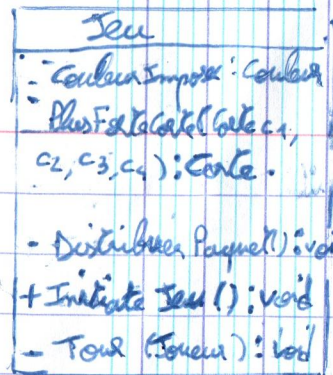 Jeu
- CouleurImpose : Couleur
- PlusForteCarte(Carte c1,
c2, c3, c4) : Carte.
- DistribuerPaquet() : void
+ Initiate Jeu () : void
- Tour (Joueur) : void